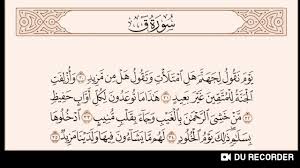 سُورَةُ ق
يَوْمَ نَقُولُ لِجَهَنَّمَ هَلِ ٱمْتَلَأْتِ وَتَقُولُ هَلْ مِن مَّزِيدٍ ٣٠ وَأُزْلِفَتِ
ٱلْجَنَّةُ لِلْمُتَّقِينَ غَيْرَ بَعِيدٍ ٣١ هَٰذَا مَا تُوعَدُونَ لِكُلِّ أَوَّابٍ حَفِيظٍ
٣٢ مَّنْ خَشِيَ ٱلرَّحْمَٰنَ بِٱلْغَيْبِ وَجَآءَ بِقَلْبٍ مُّنِيبٍ ٣٣ ٱدْخُلُوهَا
بِسَلَٰمٍ ذَٰلِكَ يَوْمُ ٱلْخُلُودِ ٣٤ لَهُم مَّا يَشَآءُونَ فِيهَا وَلَدَيْنَا مَزِيدٌ ٣٥
DU RECORDER